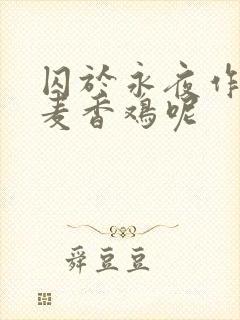 囚於永夜作
麦香鸡呢
舜豆豆